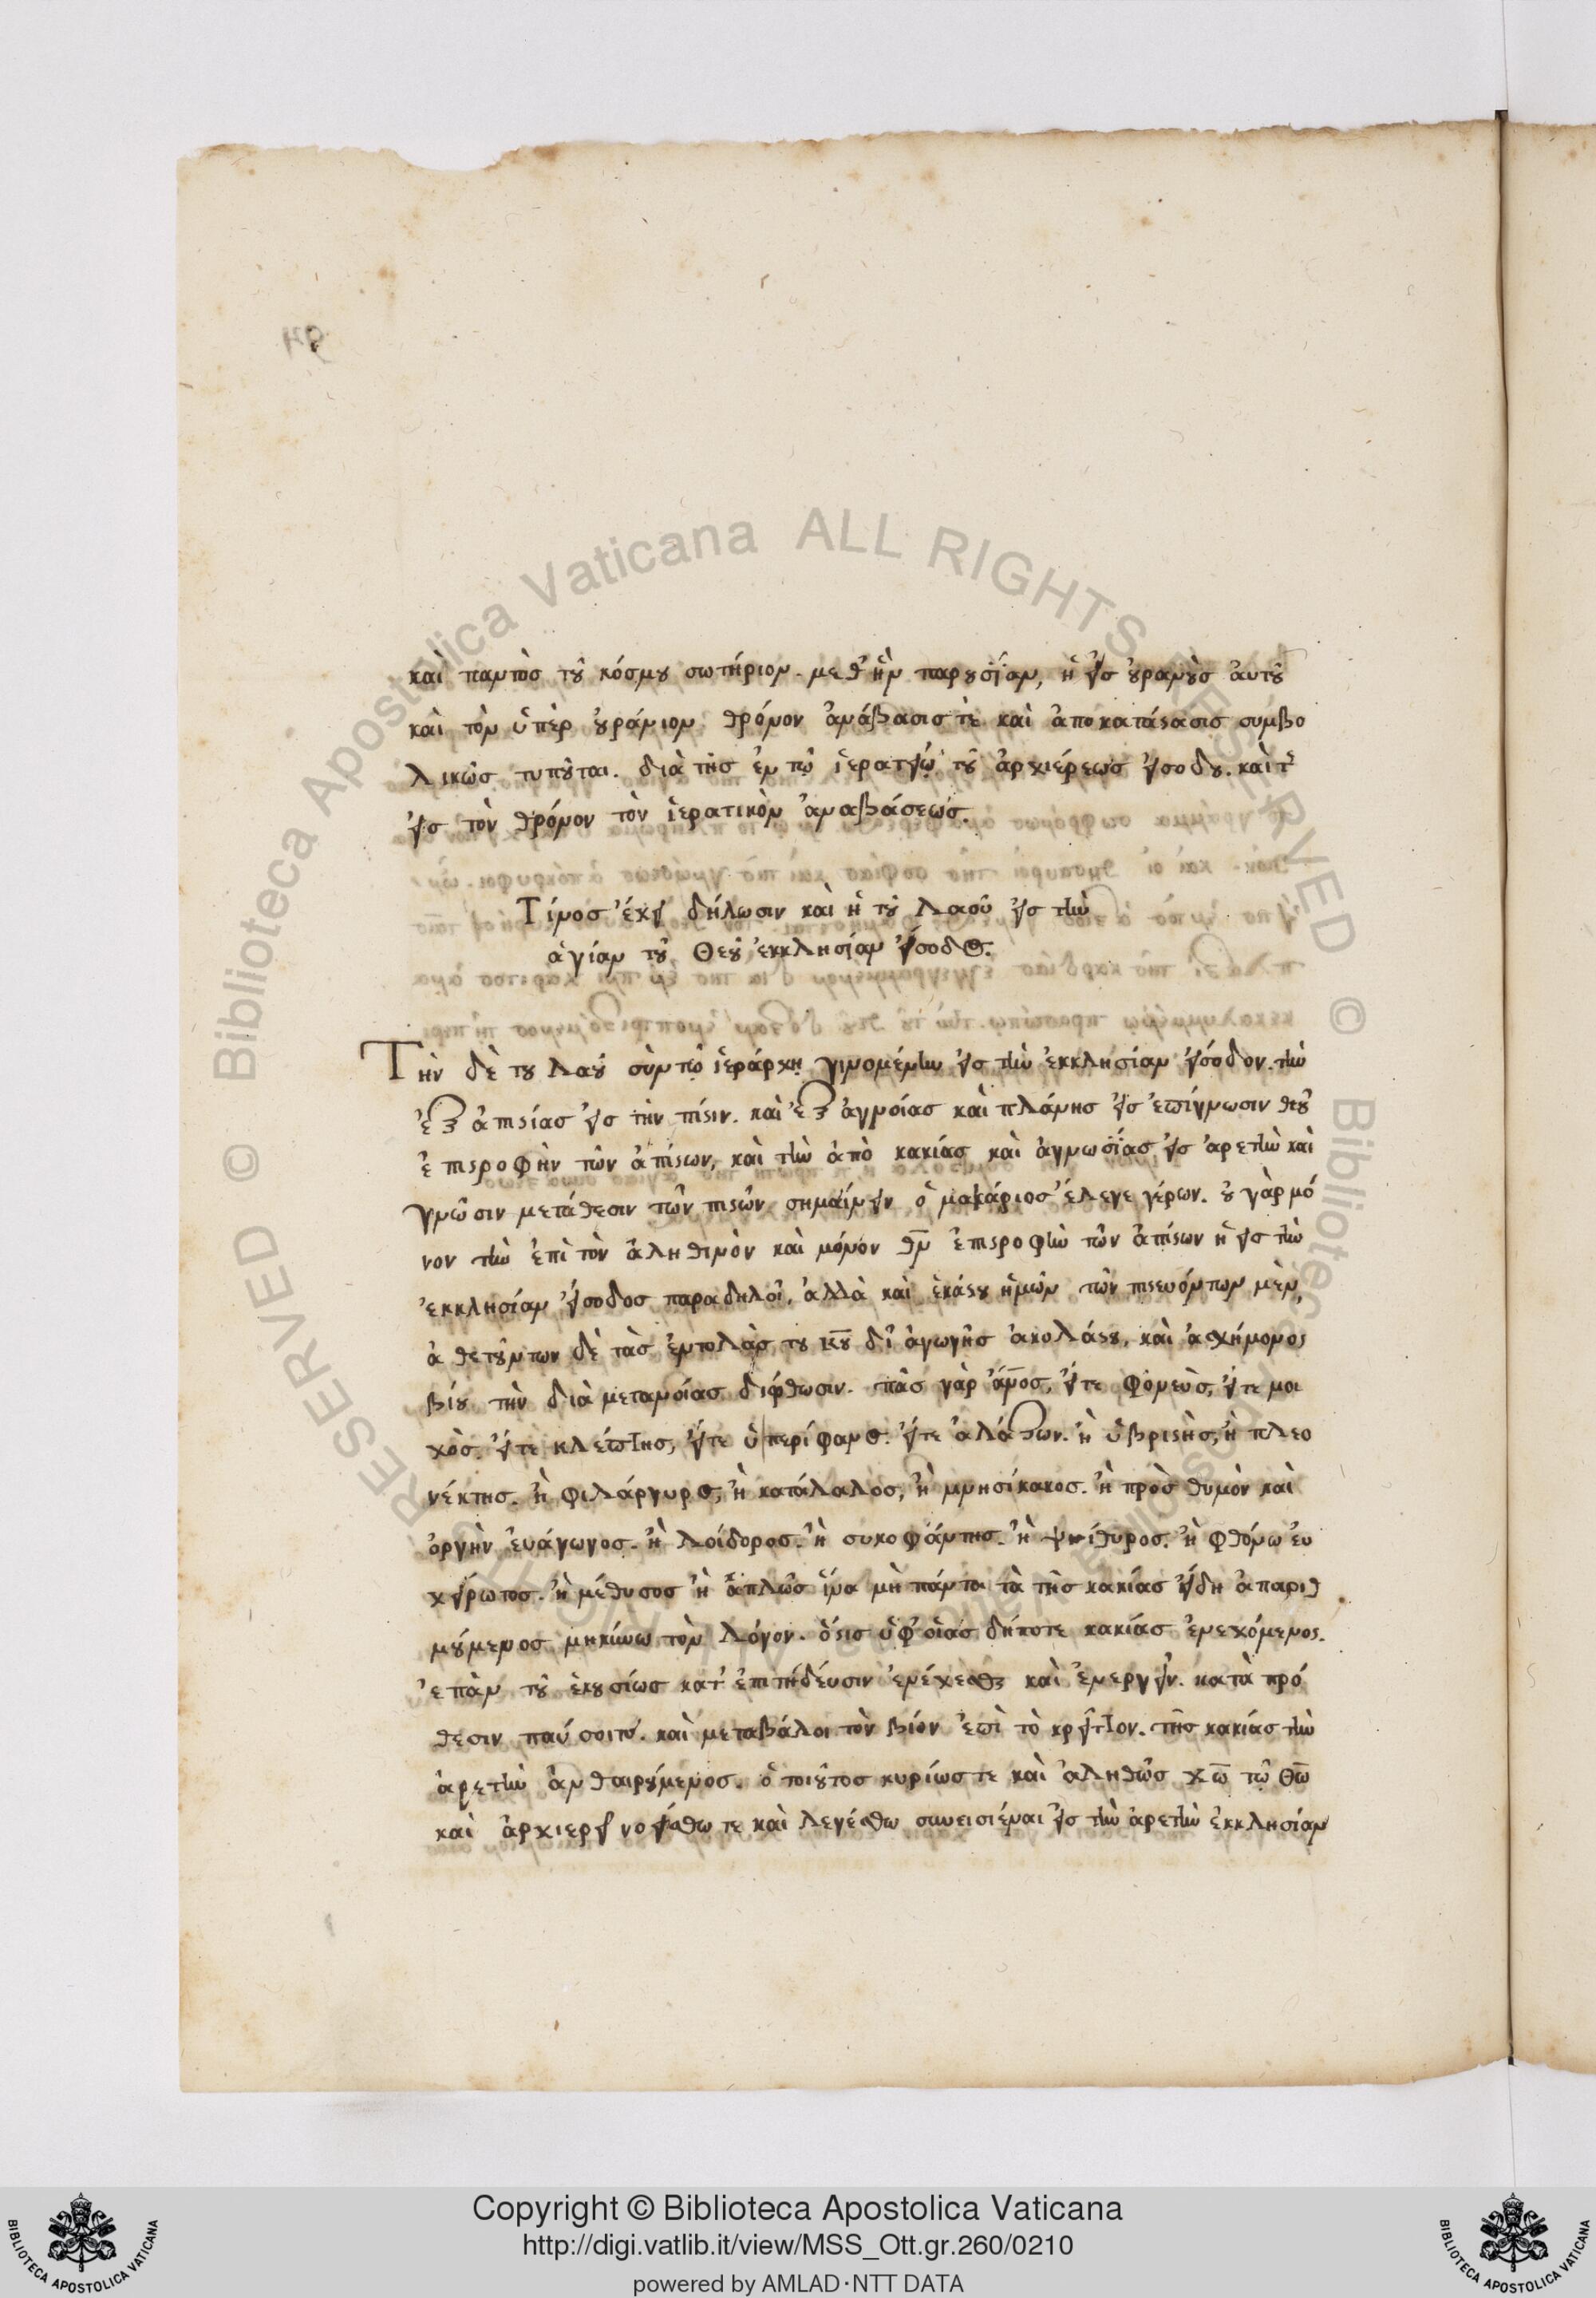 καὶ παντὸς τοῦ κόσμου σωτήριον. μεθ' ἣν παρουσίαν, ἡ εἰς οὐρανοὺς αὐτοῦ
καὶ τὸν ὑπὲρ οὐράνιον θρόνον ἀνάβασίς τε καὶ ἀποκατάστασις συμβο
λικῶς τυποῦται. διὰ τῆς ἐν τῷ ἱερατείῳ τοῦ ἀρχιέρεως εἰσόδου. καὶ τῆς
εἰς τὸν θρόνον τὸν ἱερατικὸν ἀναβάσεως.
Τίνος ἔχει δήλωσιν καὶ ἡ τοῦ λαοῦ εἰς τὴν
ἁγίαν τοῦ Θεοῦ ἐκκλησίαν εἴσοδος.
Τὴν δὲ του λαοῦ σὺν τῷ ἱεράρχῃ γινομένην εἰς τὴν ἐκκλησίαν εἴσοδον. τὴν
ἐξ ἀπιστίας εἰς τὴν πίστιν. καὶ ἐξ ἀγνοίας καὶ πλάνης εἰς ἐπίγνωσιν θεοῦ
ἐπιστροφὴν τῶν ἀπίστων, καὶ τὴν ἀπὸ κακίας καὶ ἀγνωσίας εἰς ἀρετὴν καὶ
γνῶσιν μετάθεσιν τῶν πιστῶν σημαίνειν ὁ μακάριος ἔλεγε γέρων. οὐ γὰρ μό
νον τὴν ἐπὶ τὸν ἀληθινὸν καὶ μόνον θν̅ ἐπιστροφὴν τῶν ἀπίστων ἡ εἰς τὴν
ἐκκλησίαν εἴσοδος παραδηλοῖ, ἀλλὰ καὶ ἑκάστου ἡμῶν τῶν πιστευόντων μὲν,
ἀθετούντων δὲ τὰς ἐντολὰς του κυ̅ δι' ἀγωγῆς ἀκολάστου, καὶ ἀσχήμονος
βίου τὴν διὰ μετανοίας διόρθωσιν. πᾶς γὰρ ἄνο̅ς, εἴτε φονεὺς, εἴτε μοι
χὸς. εἴτε κλέπτης, εἴτε ὑπερίφανος. εἴτε ἀλάζων. ἢ ὑβριστὴς, ἢ πλεο
νέκτης. ἢ φιλάργυρος, ἢ κατάλαλος, ἢ μνησίκακος. ἢ πρὸς θυμὸν καὶ
ὀργὴν ἐυάγωγος. ἢ λοίδορος. ἢ συκοφάντης. ἢ ψιθυρος. ἢ φθόνω ἐυ
χείρωτος. ἢ μέθυσος ἢ ἁπλῶς ἵνα μὴ πάντα τὰ τῆς κακίας εἴδη ἀπαριθ
μούμενος μηκύνω τὸν λόγον. ὅστις ὑφ' οἵας δήποτε κακίας ἐνεχόμενος.
ἐπὰν τοῦ ἑκουσίως κατ' ἐπιτήδευσιν ἐνέχεσθαι καὶ ἐνεργεῖν. κατὰ πρό
θεσιν παύσοιτο. καὶ μεταβάλοι τὸν βίον ἐπὶ τὸ κρεῖττον. τῆς κακίας τὴν
ἀρετὴν ἀνθαιρούμενος. ὁ τοιοῦτος κυρίως τε καὶ ἀληθῶς χω̅ τῷ θω̅
καὶ ἀρχιερεῖ νοείσθω τε καὶ λεγέσθω συνεισιέναι εἰς τὴν ἀρετὴν ἐκκλησίαν
Copyright © Biblioteca Apostolica Vaticana
http://digi.vatlib.it/view/MSS_Ott.gr.260/0210
powered by AMLAD·NTT DATA